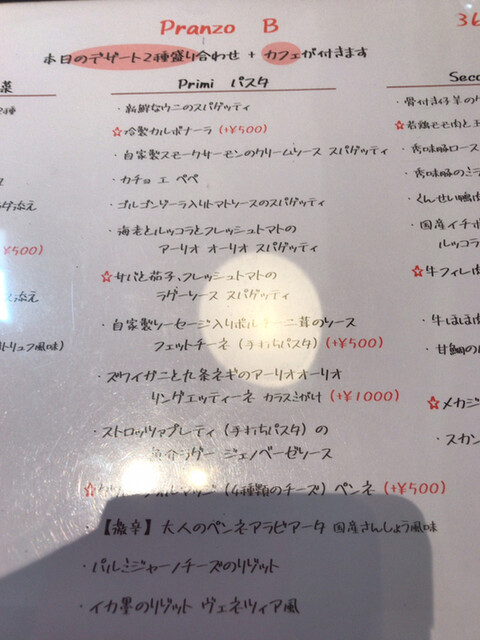 Pranzo B
36
本日のデザート2種盛り合わせ + カフェが付きます
菜
Primi パスタ
Seco
・新鮮なウニのスパゲッティ
・骨付き仔羊の
☆冷製カルボナーラ (+¥500)
☆若鶏モモ肉と
・自家製スモークサーモンのクリームソース スパゲッティ
・カチョ エ ペペ
添え
・ゴルゴンゾーラ入りトマトソースのスパゲッティ
・くんせい鴨
・海老とルッコラとフレッシュトマトの
・国産イチ
アーリオ オーリオ スパゲッティ
ルッコラ
¥500)
☆サバと茄子、フレッシュトマトの
☆牛フィレ肉
ラグーソース スパゲッティ
添え
・自家製ソーセージ入りポルチーニ茸のソース
・牛ほほ肉
フェットチーネ (手打ちパスタ) (+¥500)
トリュフ風味)
・甘鯛の
・ズワイガニと九条ネギのアーリオオーリオ
リングエッティーネ カラスミがけ (+¥1000)
☆メカジ
・ストロッツァプレティ (手打ちパスタ) の
・スカン
魚介ラグー ジェノベーゼソース
☆ フォルマッジ (4種類のチーズ) ペンネ (+¥500)
・【激辛】大人のペンネアラビアータ 国産さんしょう風味
・パルミジャーノチーズのリゾット
・イカ墨のリゾット ヴェネツィア風